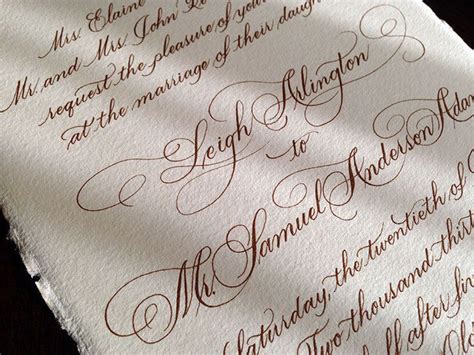 Mrs. Elaine
Mr. and Mrs. John
request the pleasure of your
at the marriage of their daug
Leigh Arlington
to
Mr. Samuel Anderson Adam
Saturday, the twentieth of
Two thousand thirt
half after five